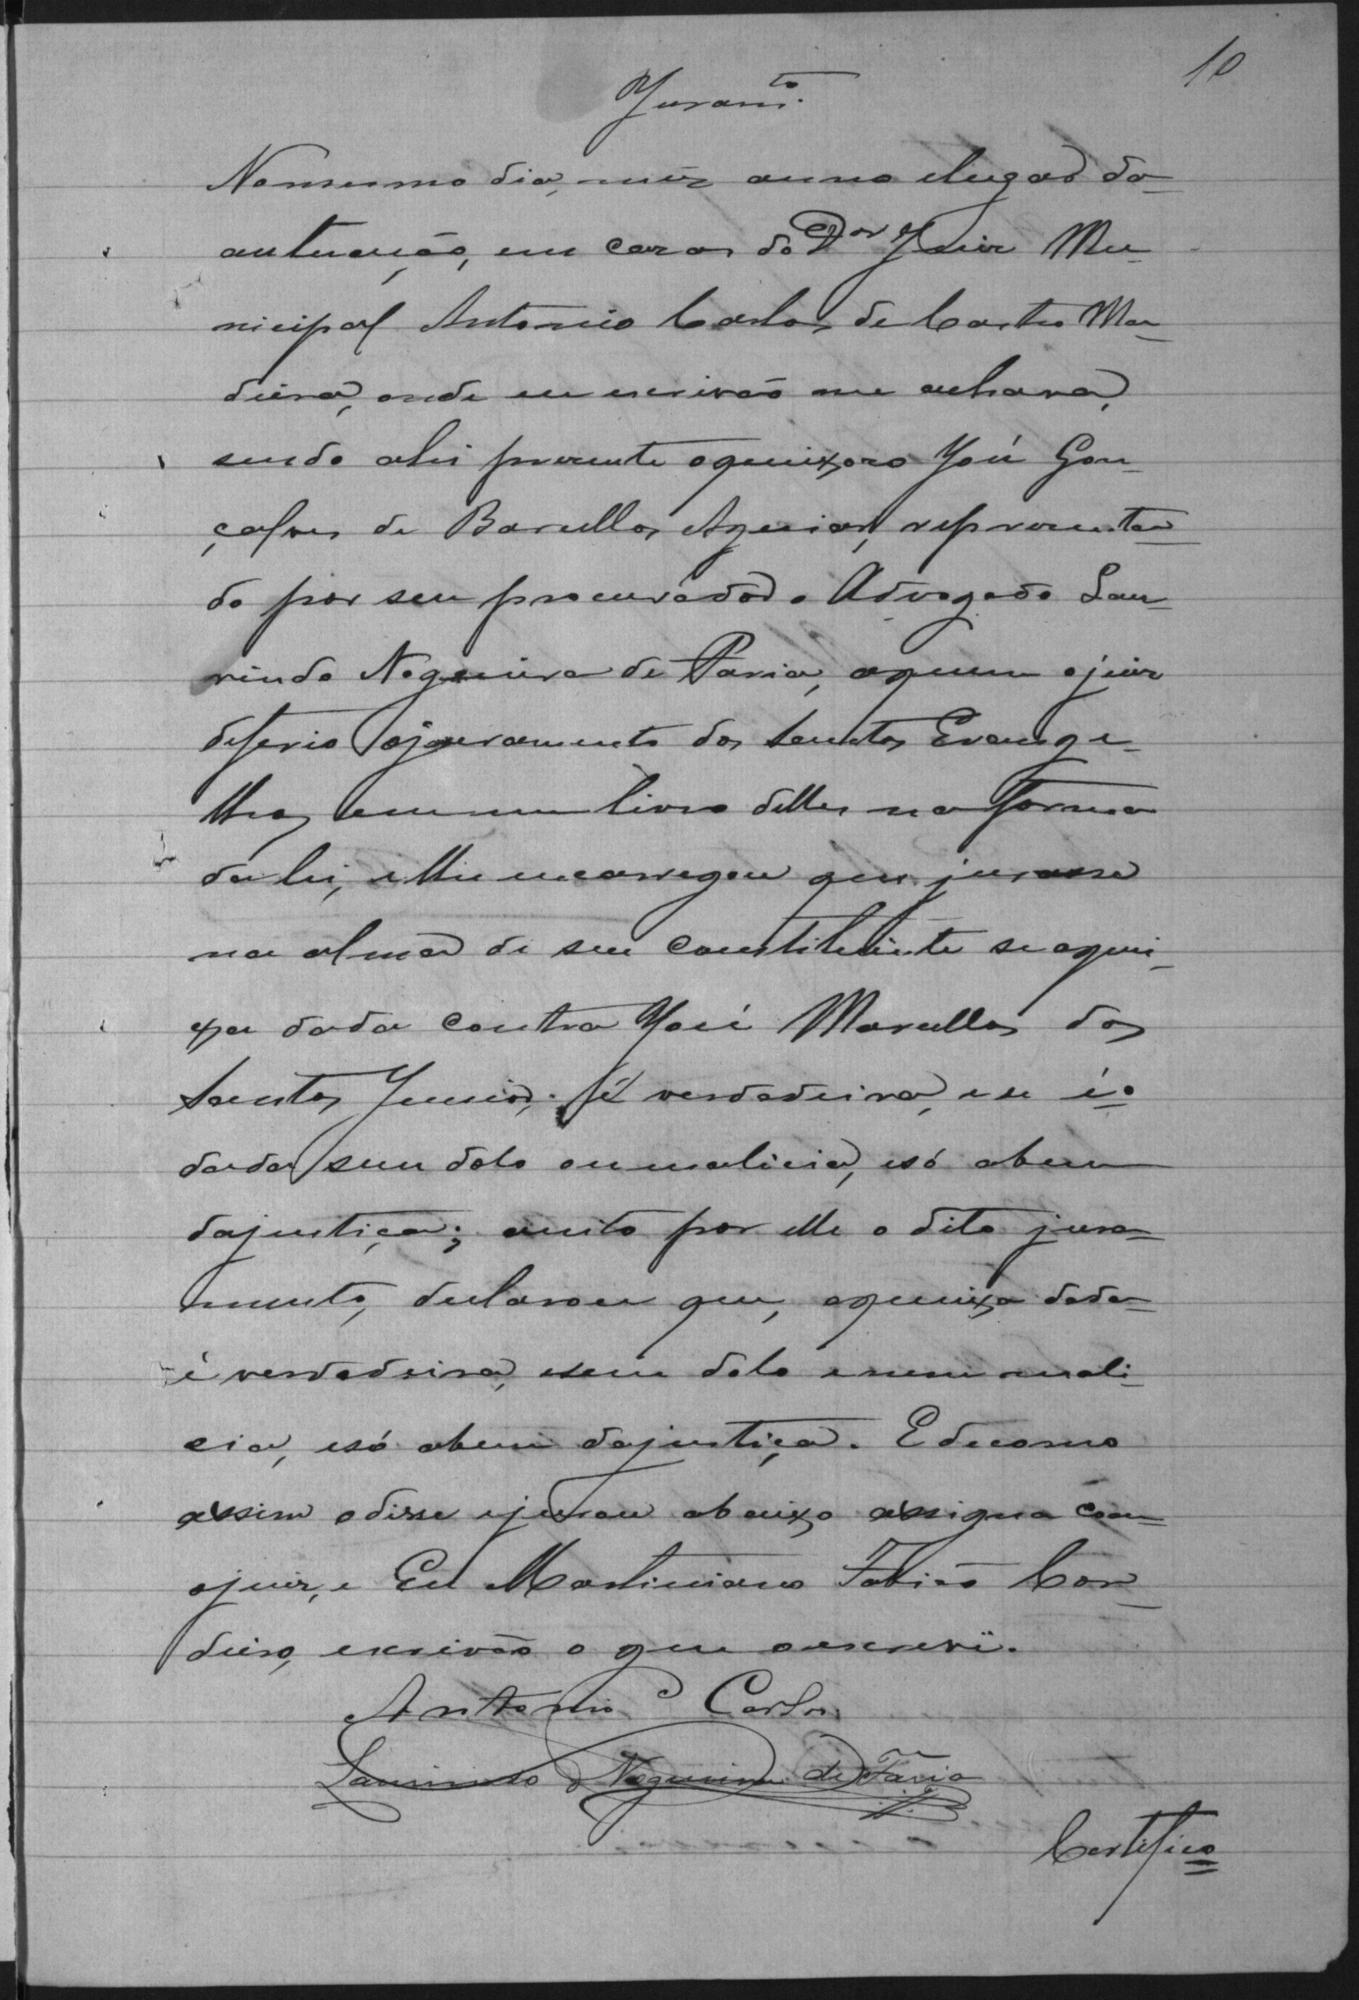 10
Juramto.
Nomesmo dia, mez anno elugar da
autuação, em caza do Dor Juiz Mu-
nicipal Antonio Carlos de Castro Ma-
deira, onde eu escrivão me achava,
sendo ahi prezente oqueixozo José Gon-
çalves de Barcellos Aguiar, reprezenta-
do por seu procurador o Advogado Lau-
rindo Nogueira de Faria, aquem ojuiz
deferio ojuramento dos Santos Evange-
lhos emum livro delles na forma
da lei, elhe encarregou que jurasse
na alma de seu constituinte se aquei-
xa dada contra José Marcellos dos
Santos Junior, é verdadeira, e se é
dada sem dolo oumalicia, esó abem
dajustiça; aceito por elle o dito jura-
mento, declarou que, aqueixa dada
é verdadeira, esem dolo enem mali-
cia, esó abem dajustiça. Edecomo
assim odisse ejurou abaixo assigna com
ojuiz, e Eu Martiniano Fabião Cor-
deiro, escrivão o que oescrevi.
Antonio Carlos
Laurindo Nogueira de Faria
Certifico